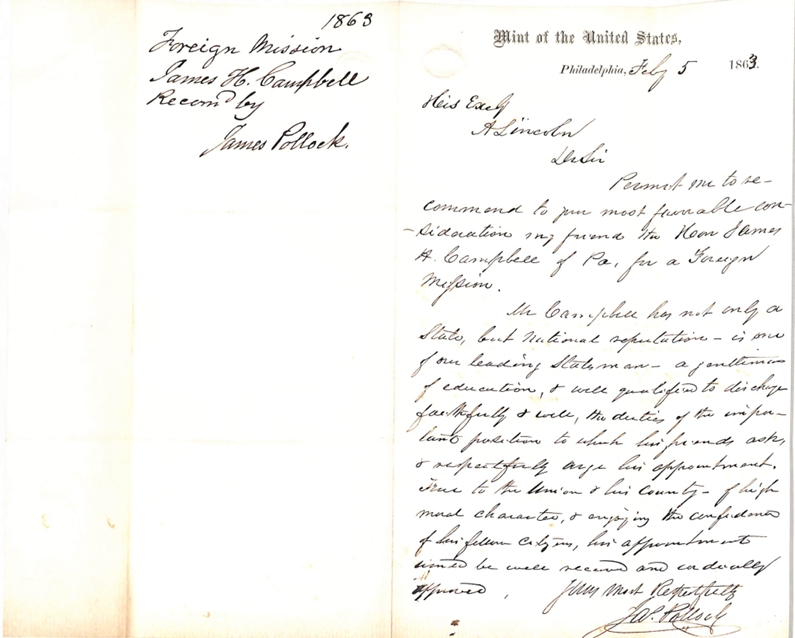 1863
Foreign Mission
James H. Campbell
Recomd by
James Pollock.
Mint of the United States,
Philadelphia, Feby 5 1863.
His Excly
A Lincoln
Dr Sir
Permit me to re-
commend to your most favorable con-
-sideration my friend the Hon James
H. Campbell of Pa, for a Foreign
Mission.
Mr Campbell has not only a
State, but National reputation - is one
of our leading Statesman - a gentleman
of education, & well qualified to discharge
faithfully & well, the duties of the impor-
tant position to which his friends ask,
& respectfully urge his appointment.
True to the Union & his County - of high
moral character, & enjoying the confidence
of his fellow Citizens, his appointment
would be well received and cordially
approved.
Yours Most Respectfully
Jas. Pollock